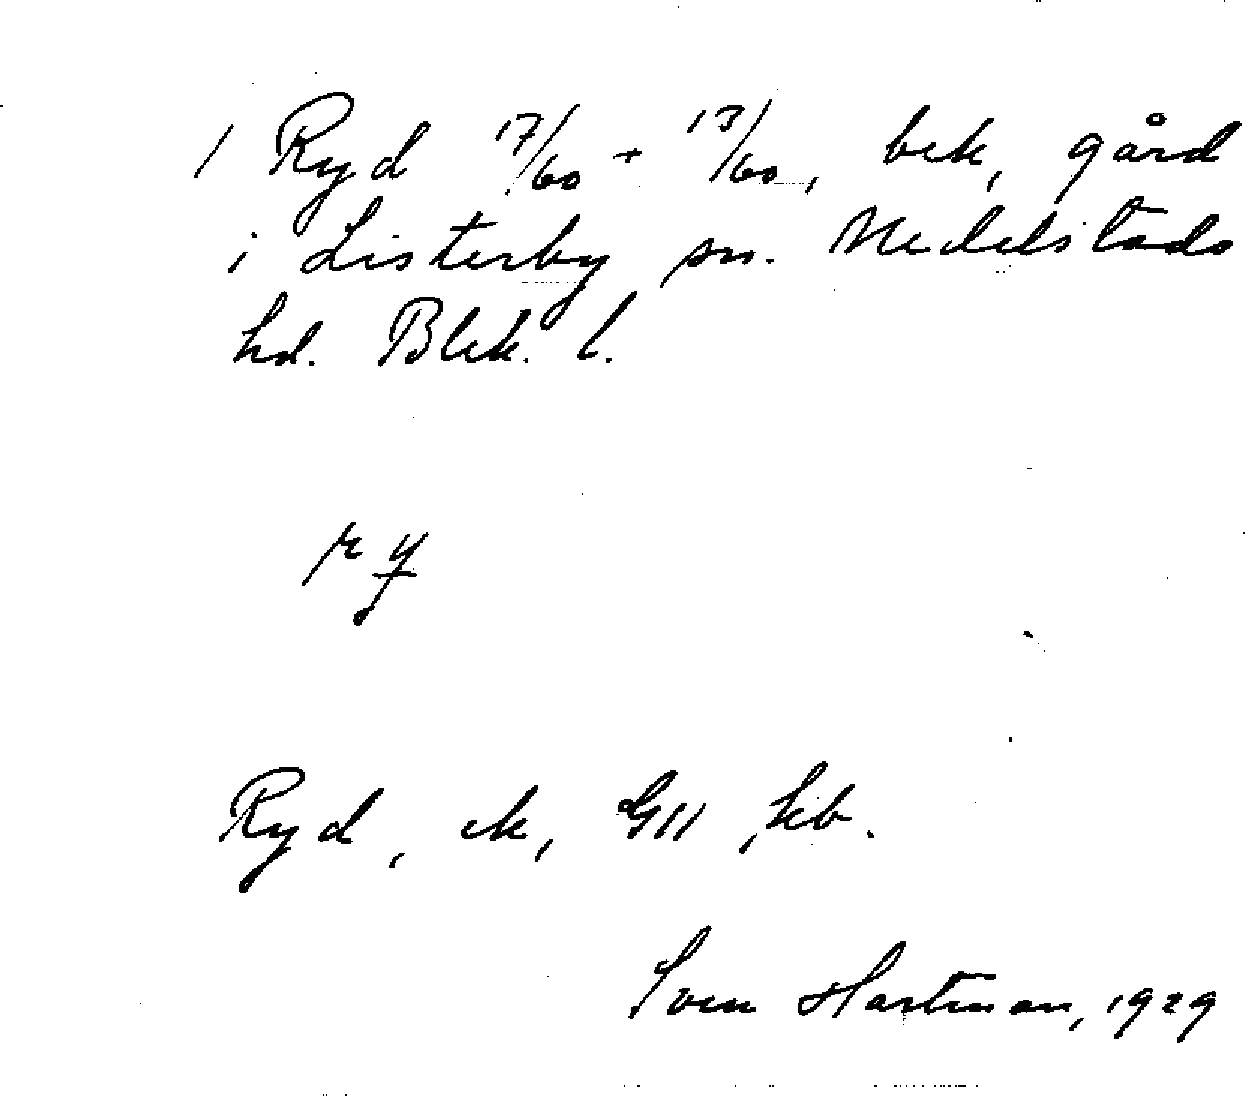 1 Ryd 17/60 + 13/60, bek, gård
i Listerby sn. Medelstads
hd. Blek. l.
ry
Ryd, ek, GII, kb.
Sven Hartman, 1929